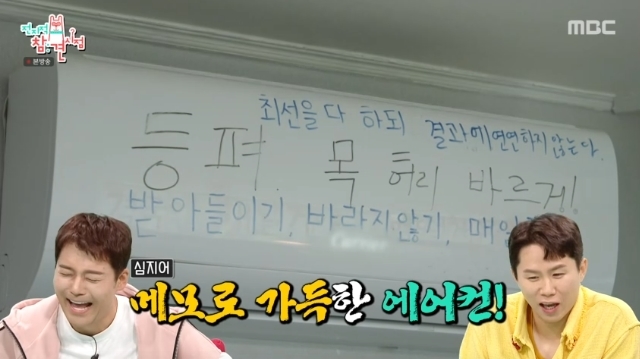 전지적 참견 시점
본방송
MBC
최선을 다 하되 결과에 연연하지 않는다.
등 펴 목 허리 바르게!
받아들이기, 바라지 않기, 매일
심지어
메모로 가득한 에어컨!